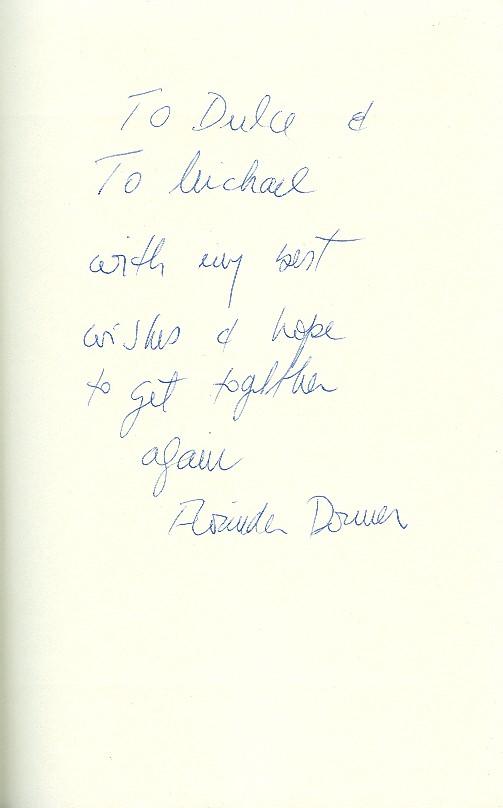 To Dulce &
To Michael
with my best
wishes & hope
to get together
again